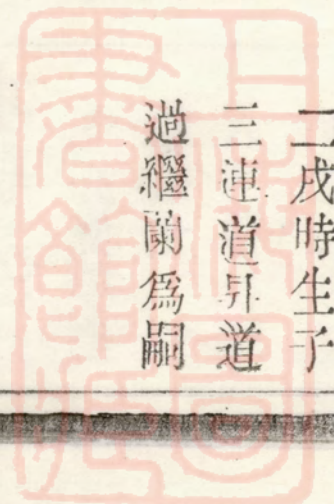 二戌時生子
三連道引道
過繼蘭爲嗣